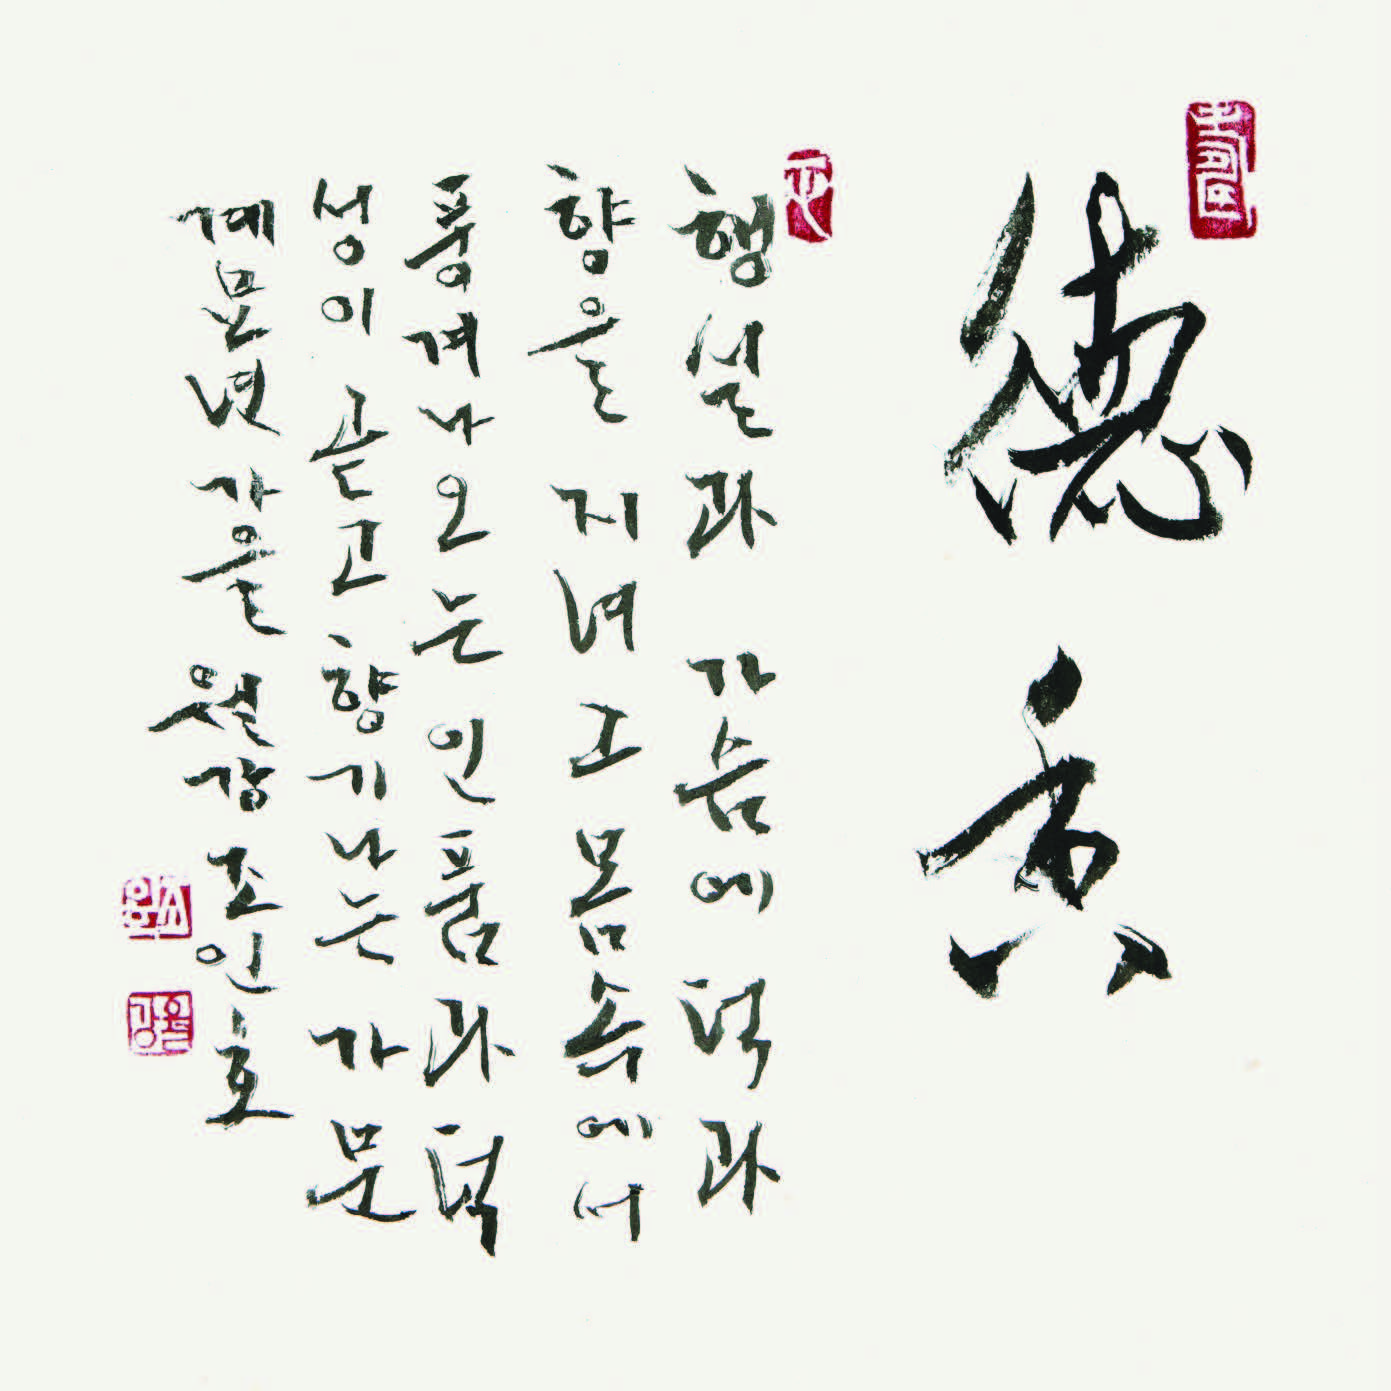 德香
행실과 가슴에 덕과
향을 지녀 그 몸속에서
풍겨나오는 인품과 덕
성이 곧고 향기나는 가문
계묘년 가을 월강 조인호